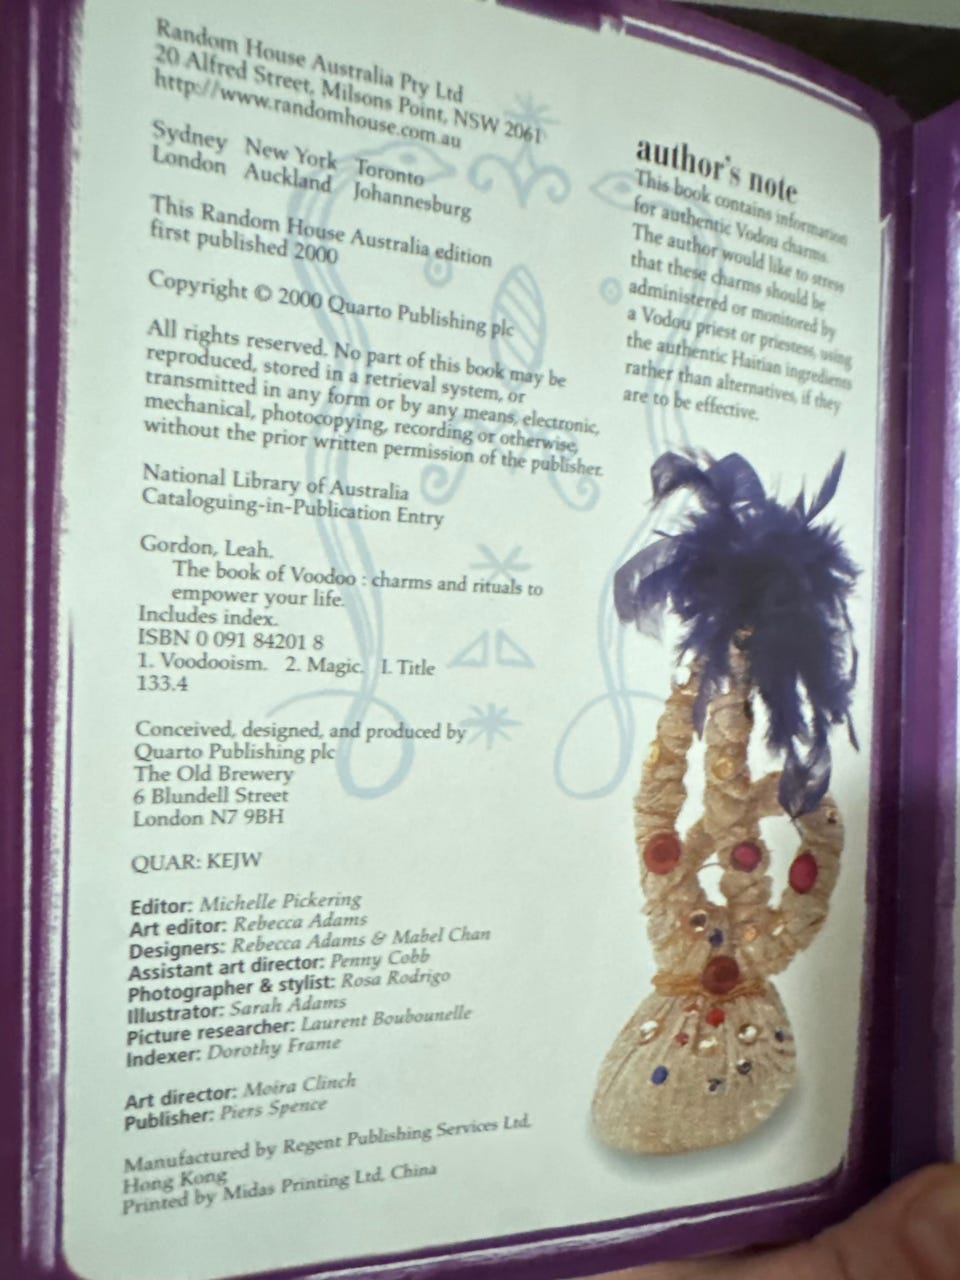 Random House Australia Pty Ltd
20 Alfred Street, Milsons Point, NSW 2061
http://www.randomhouse.com.au
Sydney New York Toronto
London Auckland Johannesburg
This Random House Australia edition
first published 2000
Copyright © 2000 Quarto Publishing plc
All rights reserved. No part of this book may be
reproduced, stored in a retrieval system, or
transmitted in any form or by any means, electronic,
mechanical, photocopying, recording or otherwise,
without the prior written permission of the publisher.
National Library of Australia
Cataloguing-in-Publication Entry
Gordon, Leah.
The book of Voodoo : charms and rituals to
empower your life.
Includes index.
ISBN 0 091 84201 8
1. Voodooism. 2. Magic. I. Title
133.4
Conceived, designed, and produced by
Quarto Publishing plc
The Old Brewery
6 Blundell Street
London N7 9BH
QUAR: KEJW
Editor: Michelle Pickering
Art editor: Rebecca Adams
Designers: Rebecca Adams & Mabel Chan
Assistant art director: Penny Cobb
Photographer & stylist: Rosa Rodrigo
Illustrator: Sarah Adams
Picture researcher: Laurent Boubounelle
Indexer: Dorothy Frame
Art director: Moira Clinch
Publisher: Piers Spence
Manufactured by Regent Publishing Services Ltd,
Hong Kong
Printed by Midas Printing Ltd, China
author's note
This book contains information
for authentic Vodou charms.
The author would like to stress
that these charms should be
administered or monitored by
a Vodou priest or priestess, using
the authentic Haitian ingredients
rather than alternatives, if they
are to be effective.